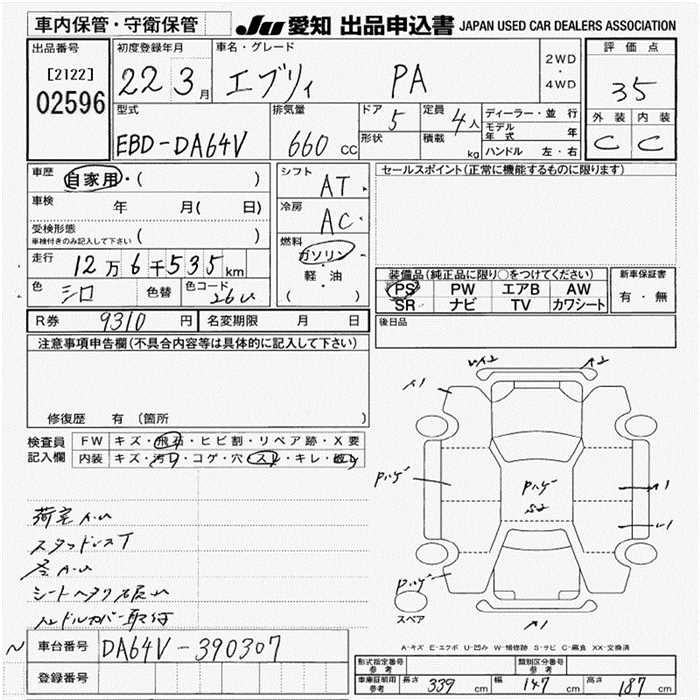 車内保管・守衛保管
JU 愛知 出品申込書 JAPAN USED CAR DEALERS ASSOCIATION
出品番号
[2122]
02596
初度登録年月
22 3月
車名・グレード
エブリィ PA
2WD
・
4WD
評価点
35
外装 内装
C C
型式
EBD-DA64V
排気量
660 cc
ドア 5
形状
定員 4人
積載 kg
ディーラー・並行
モデル年式 年
ハンドル 左・右
車歴 自家用・( )
車検 年 月( 日)
受検形態
車検付きのみ記入して下さい ( )
走行 12万6千535km
色 シロ 色替 色コード 26U
シフト AT
冷房 AC
燃料
ガソリン
軽・油
( )
セールスポイント(正常に機能するものに限ります)
装備品(純正品に限り○をつけてください)
PS PW エアB AW
SR ナビ TV カワシート
新車保証書
有・無
後日品
R券 9310円 名変期限 月 日
注意事項申告欄(不具合内容等は具体的に記入して下さい)
修復歴 有 (箇所 )
検査員
記入欄
FW キズ・飛石・ヒビ割・リペア跡・X要
内装 キズ・汚れ・コゲ・穴・スレ・キレ・
スタッドレスT
シートヘタリ
ハンドルカバー取付
A1
A2
Pハゲ
Pハゲ
A1
Pハゲ
A1
スペア
A-キズ E-エクボ U-凹み W-補修跡 S-サビ C-腐食 XX-交換済
車台番号 DA64V-390307
登録番号
形式指定番号
参考
類別区分番号
参考
車庫証明用
参考
長さ 339 cm 幅 147 cm 高さ 187 cm